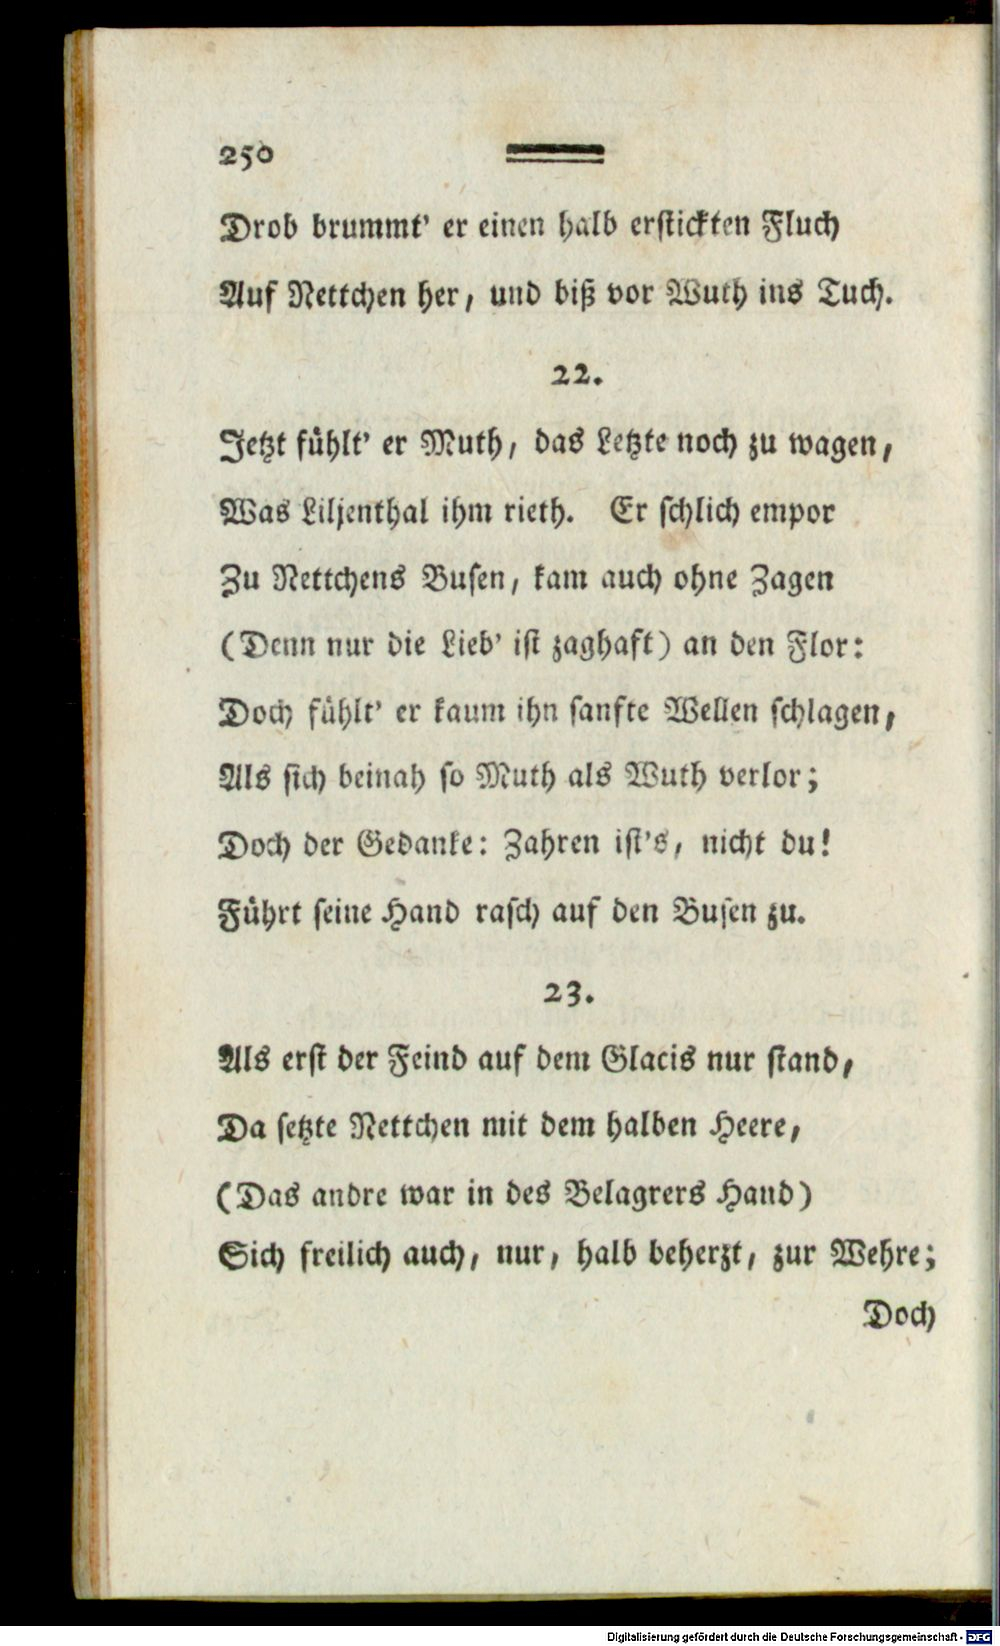 250
Drob brummt' er einen halb erstickten Fluch
Auf Nettchen her, und biß vor Wuth ins Tuch.
22.
Jetzt fühlt' er Muth, das Letzte noch zu wagen,
Was Liljenthal ihm rieth. Er schlich empor
Zu Nettchens Busen, kam auch ohne Zagen
(Denn nur die Lieb' ist zaghaft) an den Flor:
Doch fühlt' er kaum ihn sanfte Wellen schlagen,
Als sich beinah so Muth als Wuth verlor;
Doch der Gedanke: Zahren ist's, nicht du!
Führt seine Hand rasch auf den Busen zu.
23.
Als erst der Feind auf dem Glacis nur stand,
Da setzte Nettchen mit dem halben Heere,
(Das andre war in des Belagrers Hand)
Sich freilich auch, nur, halb beherzt, zur Wehre;
Doch
Digitalisierung gefördert durch die Deutsche Forschungsgemeinschaft - DFG